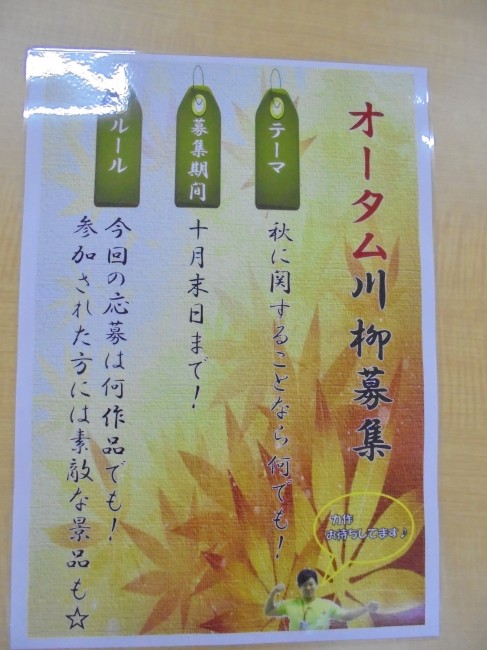 オータム川柳募集
テーマ
秋に関することなら何でも！
募集期間
十月末日まで！
ルール
今回の応募は何作品でも！
参加された方には素敵な景品も☆
力作
お待ちしてます♪